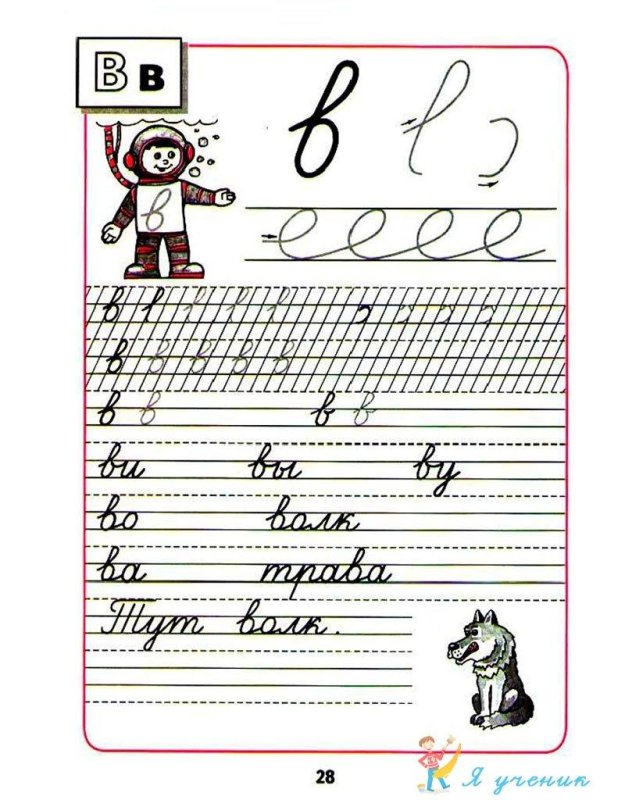 В в
в
в
в в
в в в в в
в в в в
ви вы ву
во волк
ва трава
Тут волк.
28
Я ученик